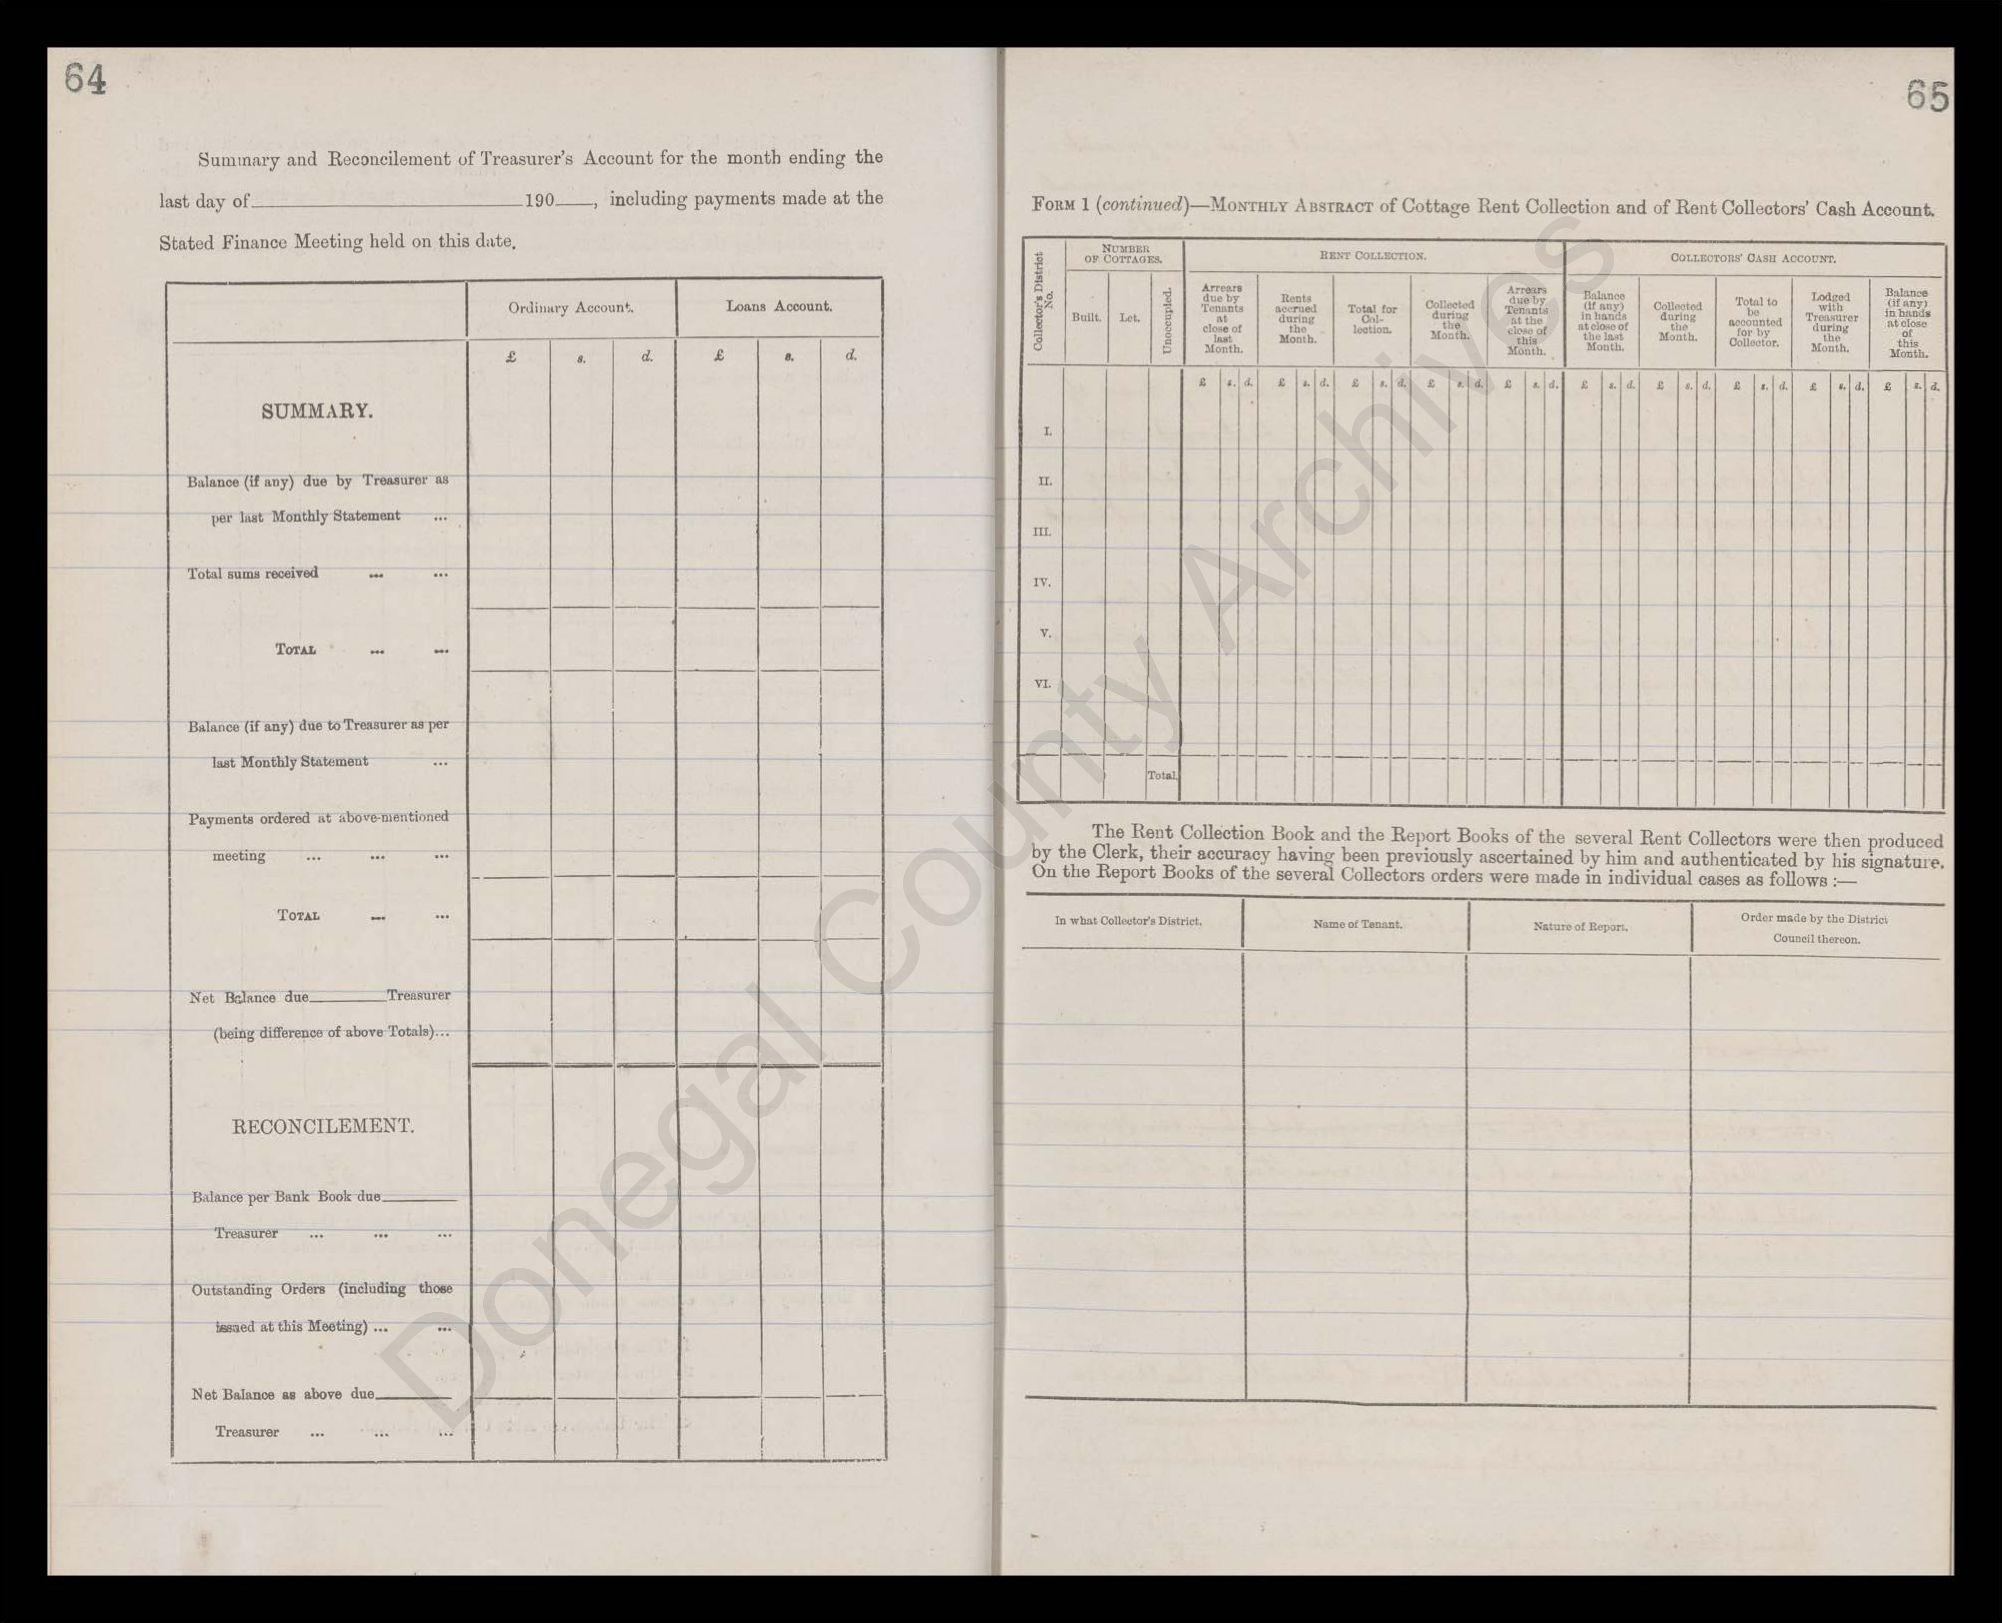 64
Summary and Reconcilement of Treasurer's Account for the month ending the
last day of 190 , including payments made at the
Stated Finance Meeting held on this date.
Ordinary Account. Loans Account.
£ s. d. £ s. d.
SUMMARY.
Balance (if any) due by Treasurer as
per last Monthly Statement ...
Total sums received ... ...
TOTAL ... ...
Balance (if any) due to Treasurer as per
last Monthly Statement ...
Payments ordered at above-mentioned
meeting ... ... ...
TOTAL ... ...
Net Balance due Treasurer
(being difference of above Totals)...
RECONCILEMENT.
Balance per Bank Book due
Treasurer ... ... ...
Outstanding Orders (including those
issued at this Meeting) ... ...
Net Balance as above due
Treasurer ... ... ...
65
FORM 1 (continued)—MONTHLY ABSTRACT of Cottage Rent Collection and of Rent Collectors' Cash Account.
Collector's District
No.
NUMBER
OF COTTAGES.
RENT COLLECTION.
COLLECTORS' CASH ACCOUNT.
Built.
Let.
Unoccupied.
Arrears
due by
Tenants
at
close of
last
Month.
Rents
accrued
during
the
Month.
Total for
Col-
lection.
Collected
during
the
Month.
Arrears
due by
Tenants
at the
close of
this
Month.
Balance
(if any)
in hands
at close of
the last
Month.
Collected
during
the
Month.
Total to
be
accounted
for by
Collector.
Lodged
with
Treasurer
during
the
Month.
Balance
(if any)
in hands
at close
of
this
Month.
£ s. d. £ s. d. £ s. d. £ s. d. £ s. d. £ s. d. £ s. d. £ s. d. £ s. d. £ s. d.
I.
II.
III.
IV.
V.
VI.
Total.
The Rent Collection Book and the Report Books of the several Rent Collectors were then produced
by the Clerk, their accuracy having been previously ascertained by him and authenticated by his signature.
On the Report Books of the several Collectors orders were made in individual cases as follows :—
In what Collector's District.
Name of Tenant.
Nature of Report.
Order made by the District
Council thereon.
Donegal County Archives